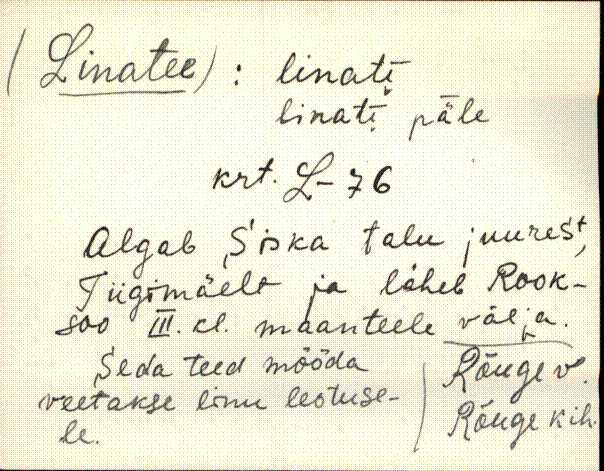 (Linatee) : linati̬
linati̬ päle
krt. L-76
Algab Siska talu juurest,
Tiigimäelt ja läheb Rook-
soo III. kl. maanteele välja.
Seda teed mööda
veetakse linu leotuse-
le.
Rõuge v.
Rõuge kih.